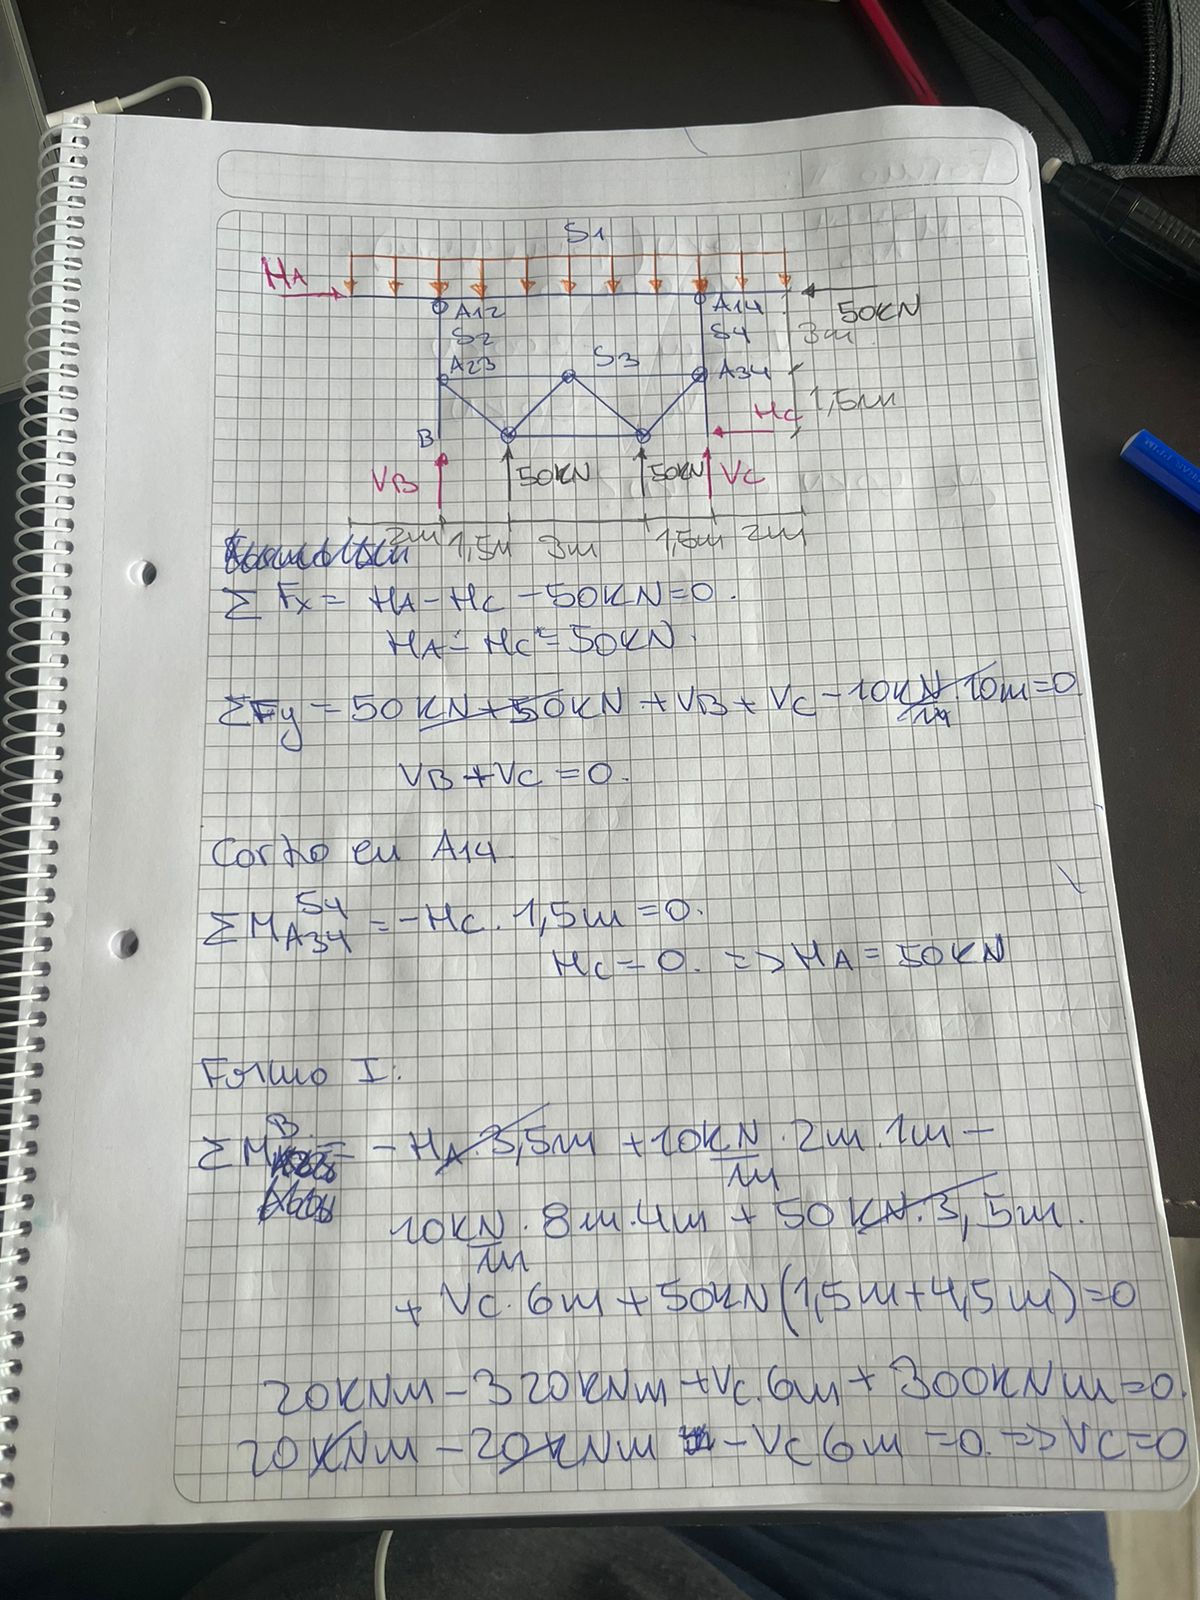 S1
HA
A12
A14
50KN
S2
S4
3m
A23
S3
A34
1,5m
HC
B
VB
50KN
50KN
VC
2m 1,5m 3m 1,5m 2m
ΣFx = HA - HC - 50KN = 0.
HA - HC = 50KN.
ΣFy = 50KN + 50KN + VB + VC - 10KN/m 10m = 0
VB + VC = 0.
Corto en A14
ΣM A34 S4 = -HC. 1,5m = 0.
HC = 0. => HA = 50KN
Formo I:
ΣM B = -HA.3,5m + 10KN/m . 2m . 1m -
10KN/m . 8m.4m + 50KN.3,5m.
+ VC.6m + 50KN(1,5m+4,5m)=0
20KNm - 320KNm + VC.6m + 300KNm = 0.
20KNm - 20KNm - VC 6m = 0. => VC=0